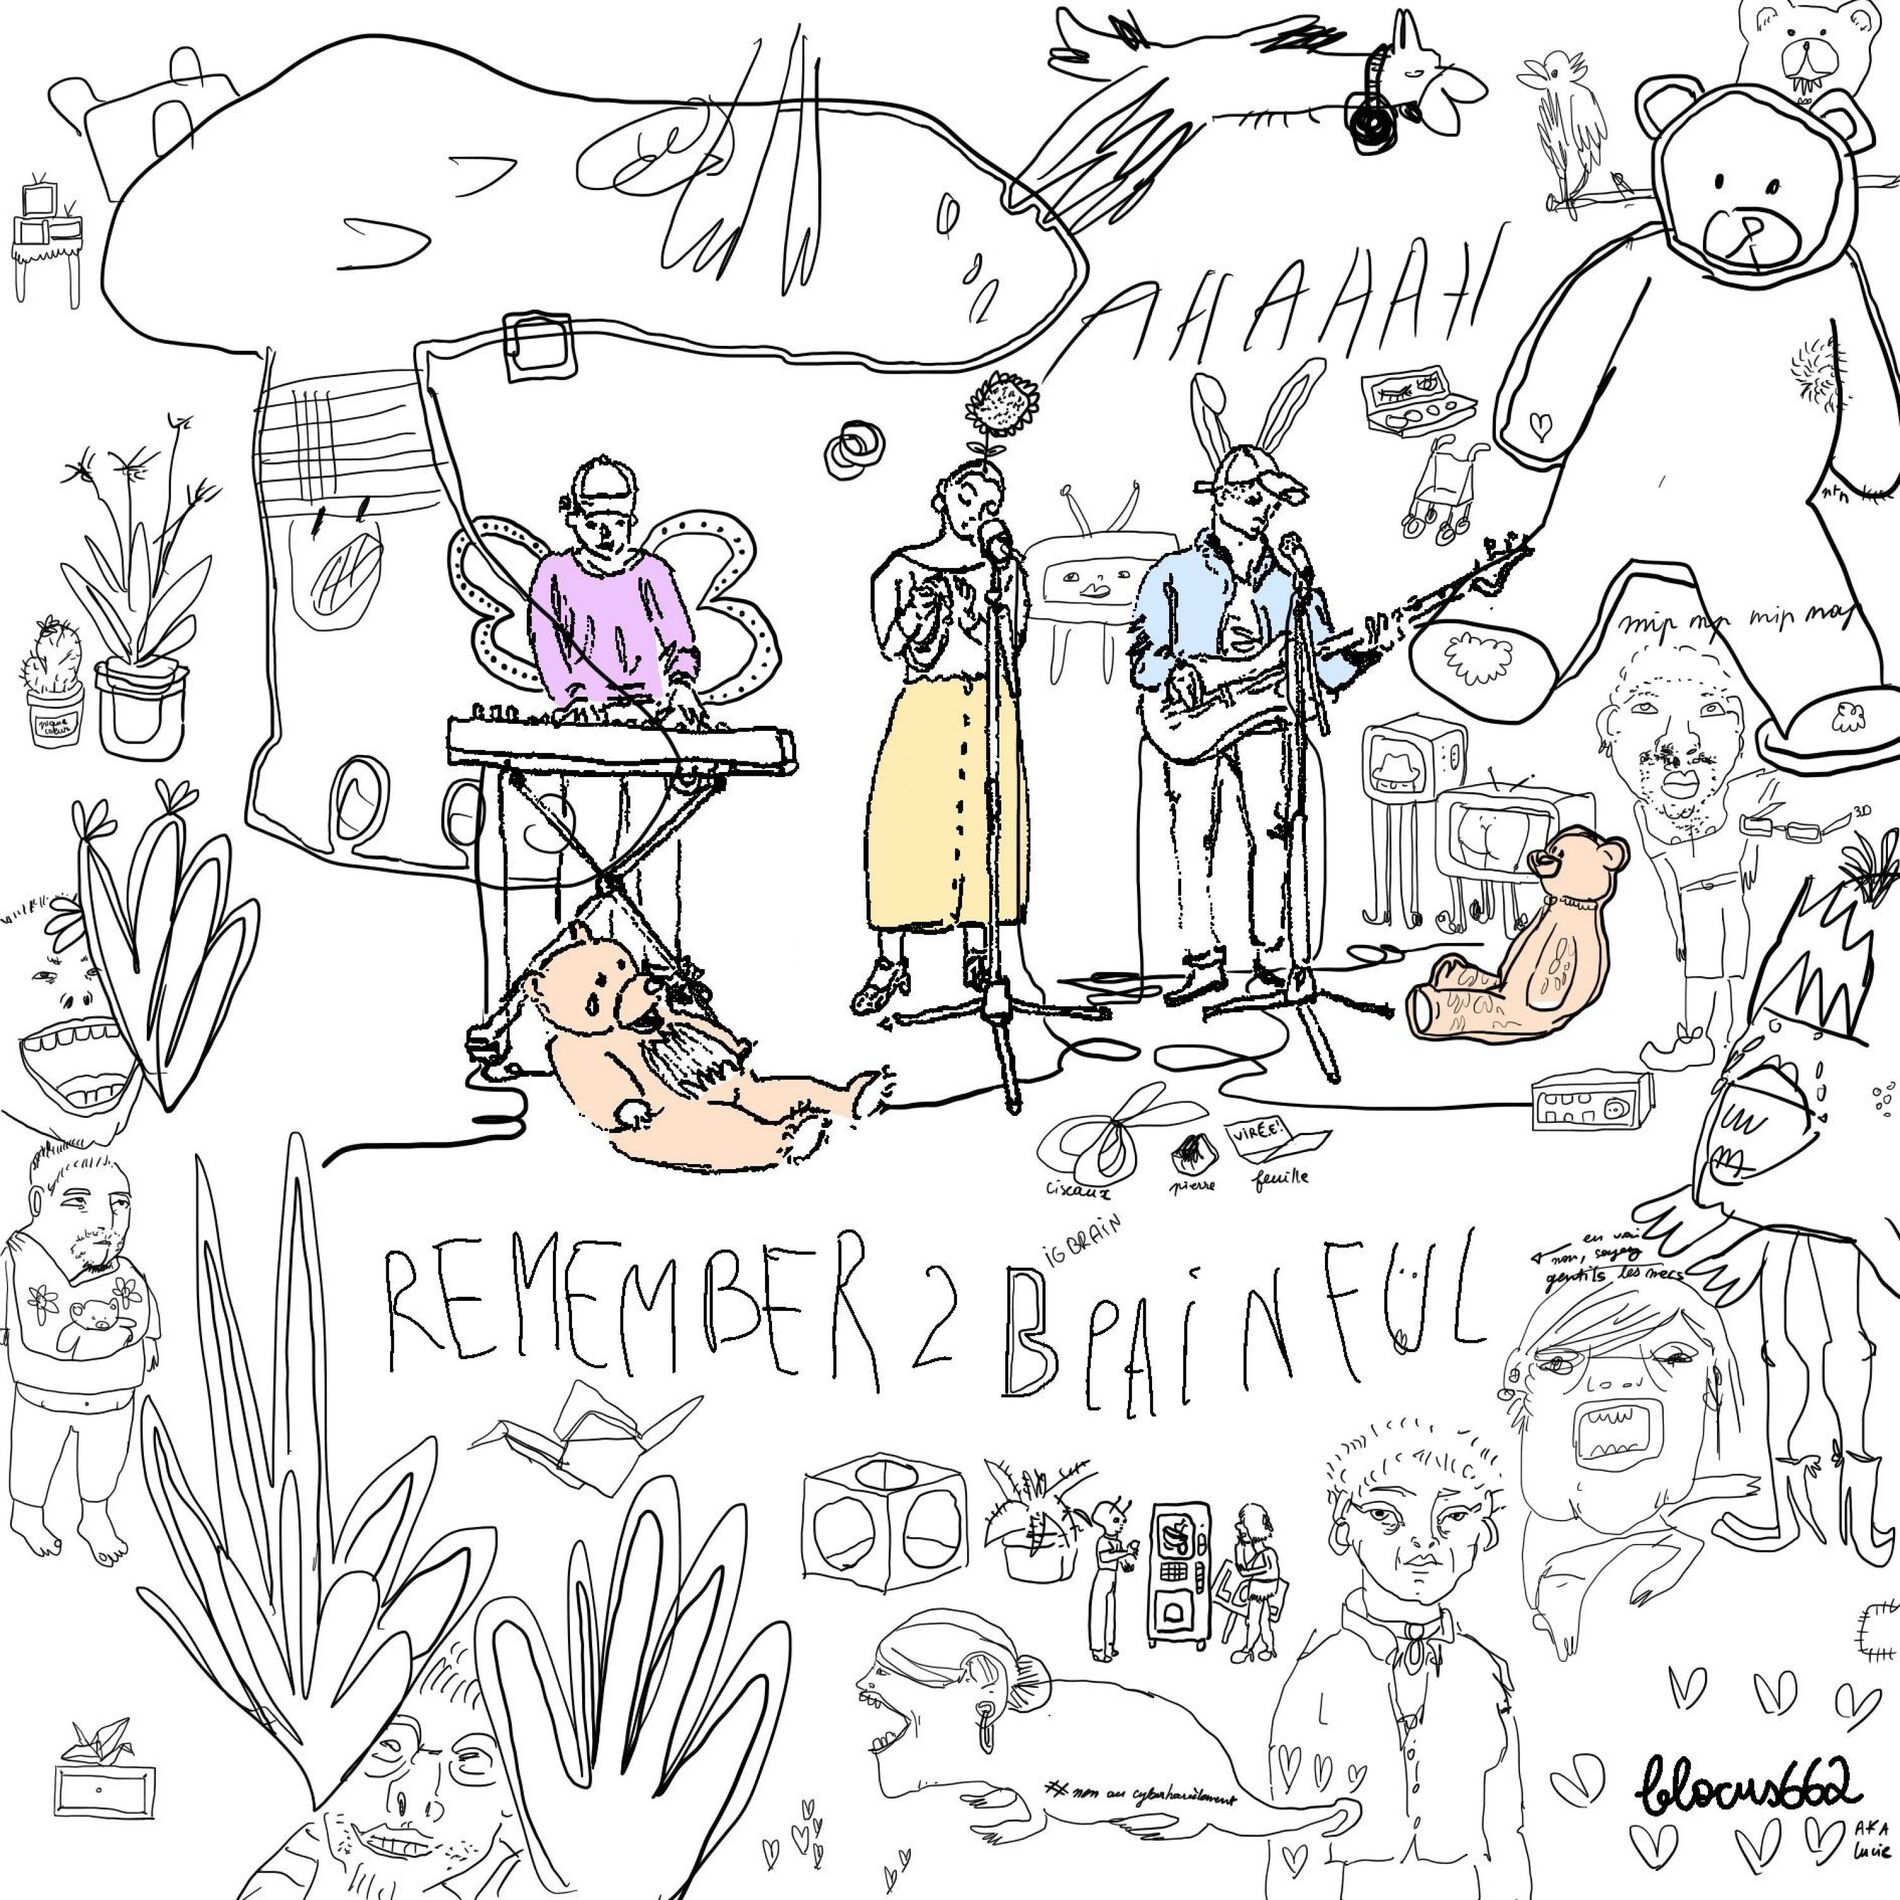 AHAHAH
mip mip mip map
pique
coeur
3D
VIRÉE!
ciseaux
pierre
feuille
iG BRAiN
REMEMBER 2 B PAiNFÜL
en vrai
non, soyez
gentils les mecs
# non au cyberharcèlement
blocus662
AKA
lucie